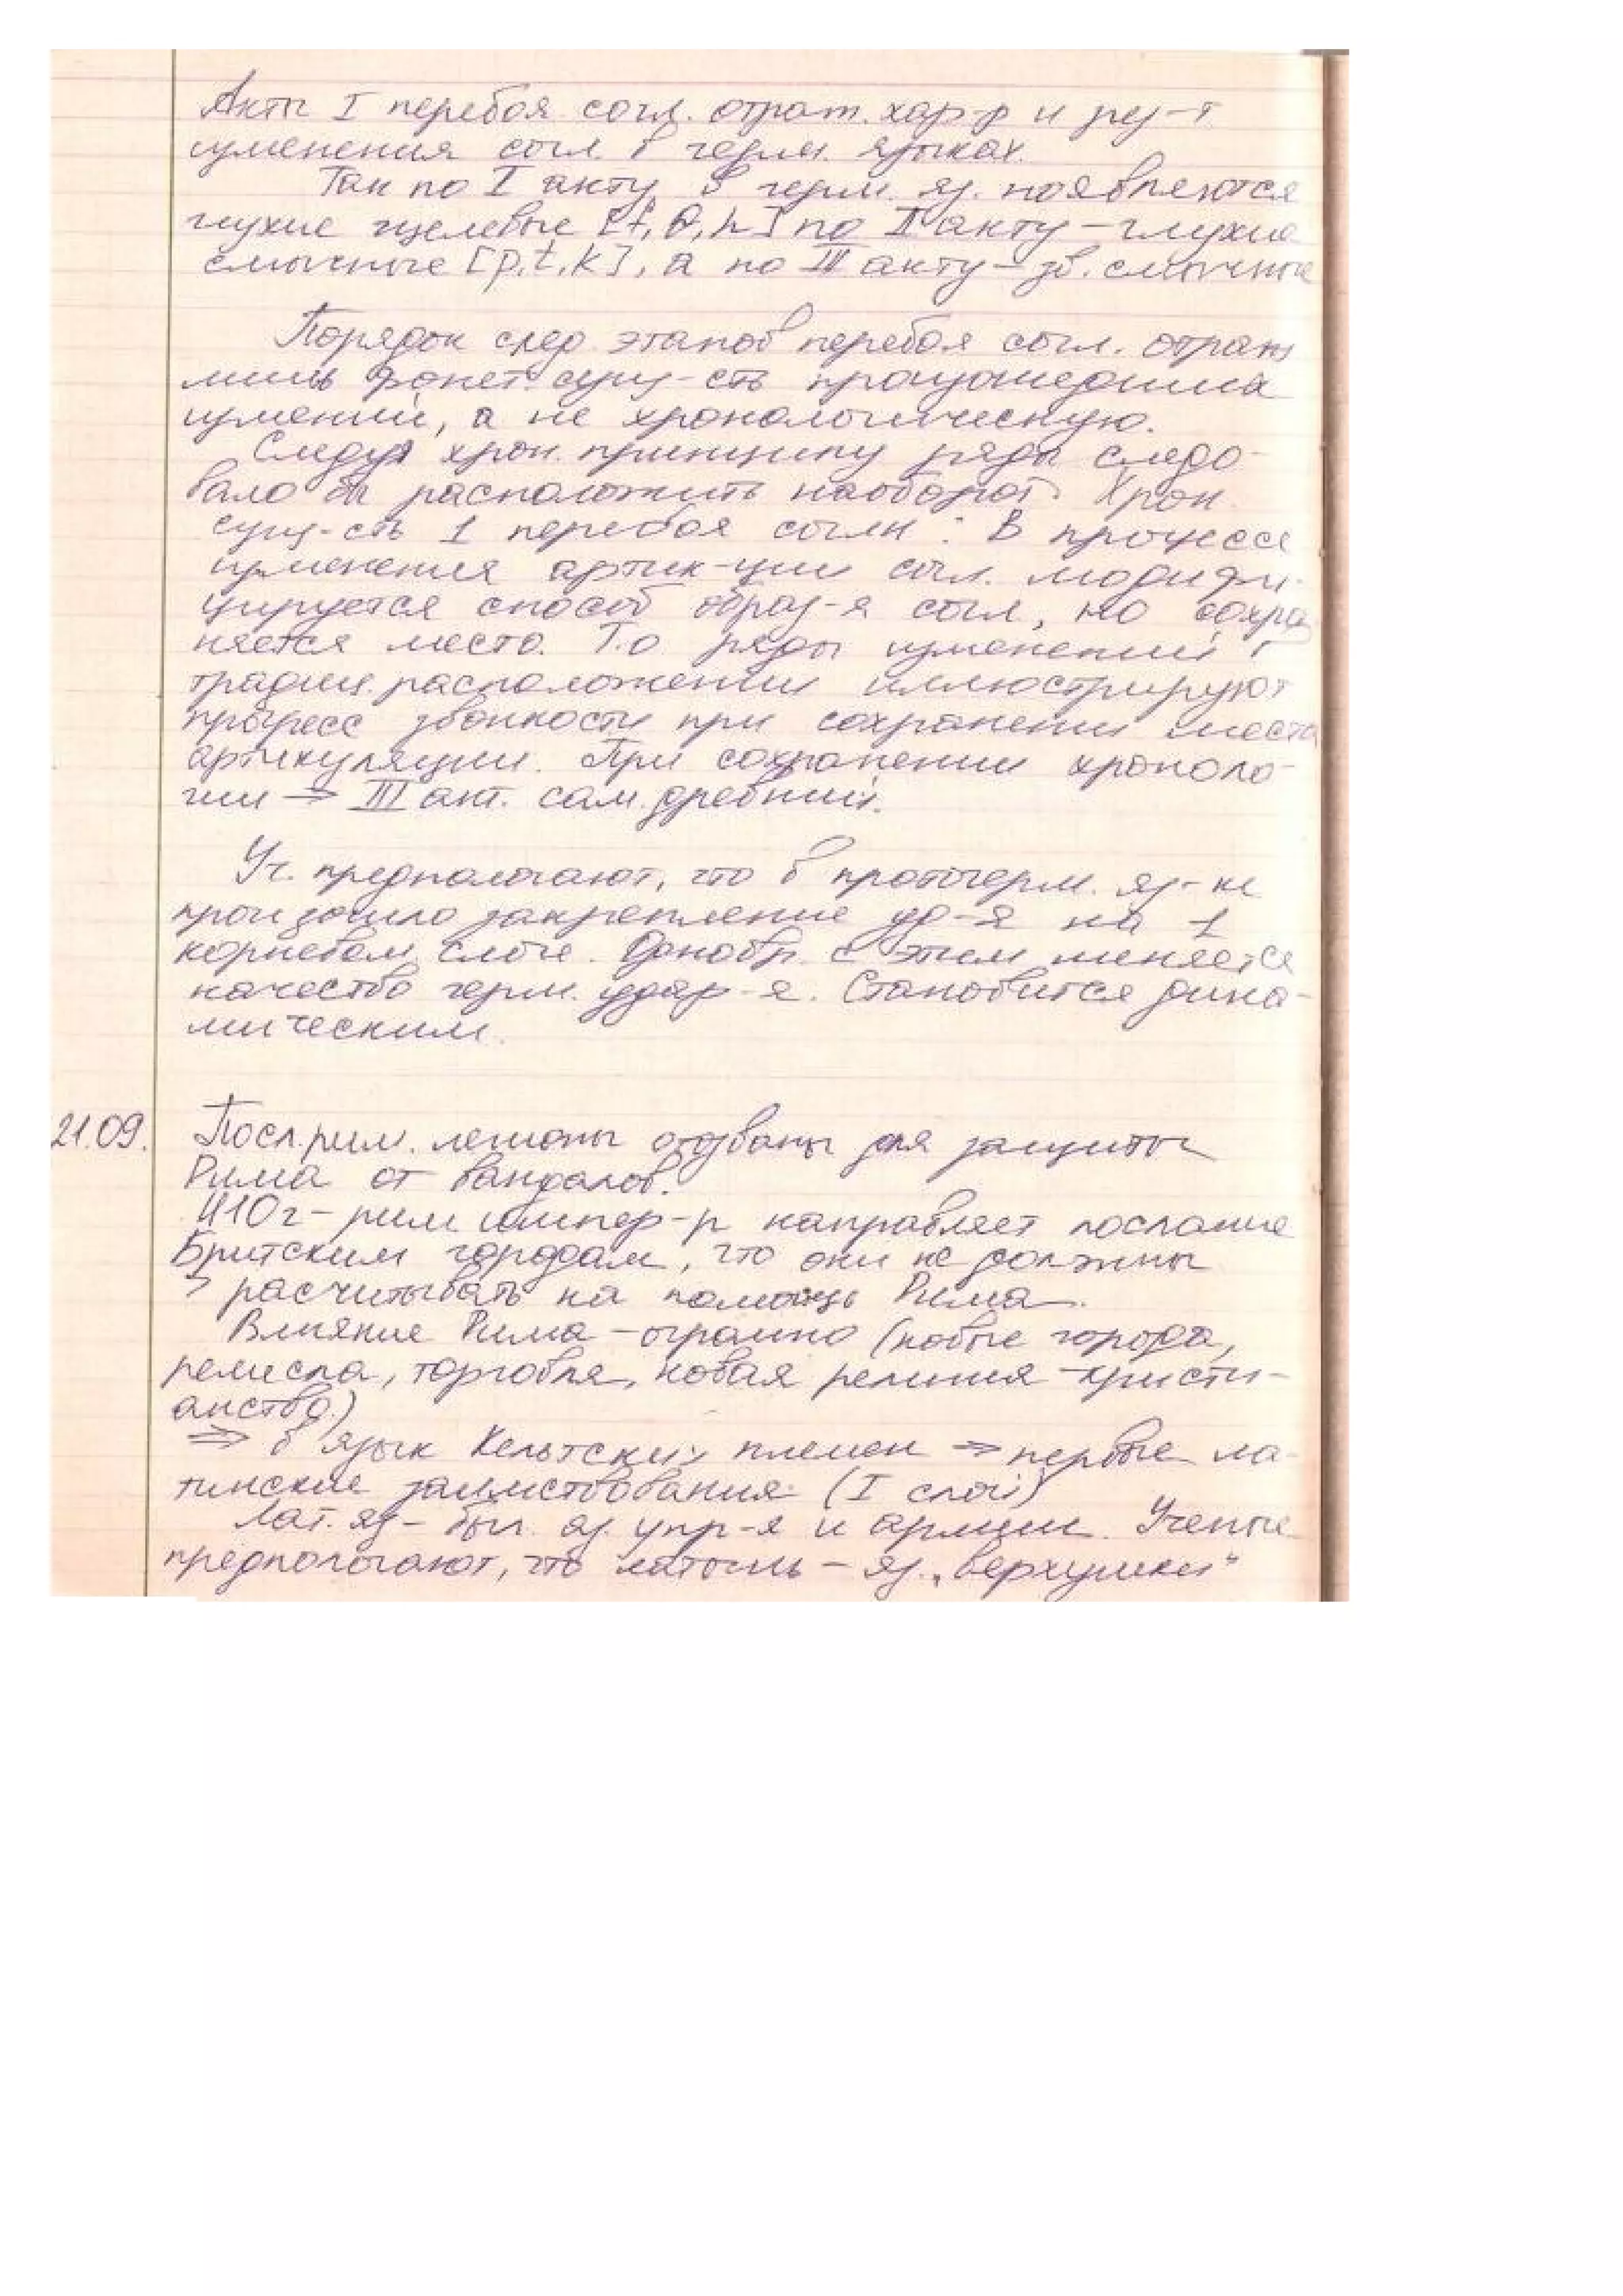 Акты I перебоя согл. отраж. хар-р и рез-т
изменения согл. в герм. языках.
Так по I акту в герм. яз. появляются
глухие щелевые [f, θ, h] по II акту – глухие
смычные [p, t, k], а по III акту – зв. смычные
Порядок след. этапов перебоя согл. отраж
лишь фонет. сущ-сть произошедших
измений, а не хронологическую.
Следуя хрон. принципу ряды следо-
вало бы расположить наоборот. Хрон.
сущ-сть 1 перебоя соглн: В процессе
изменения артик-ции согл. модифи-
цируется способ образ-я согл, но сохра
няется место. Т.о ряды изменений в
традиц. расположении иллюстрируют
прогресс звонкости при сохранении места
артикуляции. При сохранении хроноло-
гии → III акт. сам. древний.
Уч. предполагают, что в протогерм. яз-ке
произошло закрепление уд-я на 1
корневом слоге. Одновр. с этим меняется
качество герм. удар-я. Становится дина-
мическим.
21.09. Посл. рим. легионы отозваны для защиты
Рима от вандалов.
410г – рим импер-р направляет послание
Бритским городам, что они не должны
> расчитывать на помощь Рима.
Влияние Рима – огромно (новые города,
ремесла, торговля, новая религия – христи-
анство.)
⇒ в язык Кельтских племен ⇒ первые ла-
тинские заимствования (I слой)
Лат. яз – был. яз. упр-я и армии. Ученые
предпологают, что латынь – яз. „верхушки“